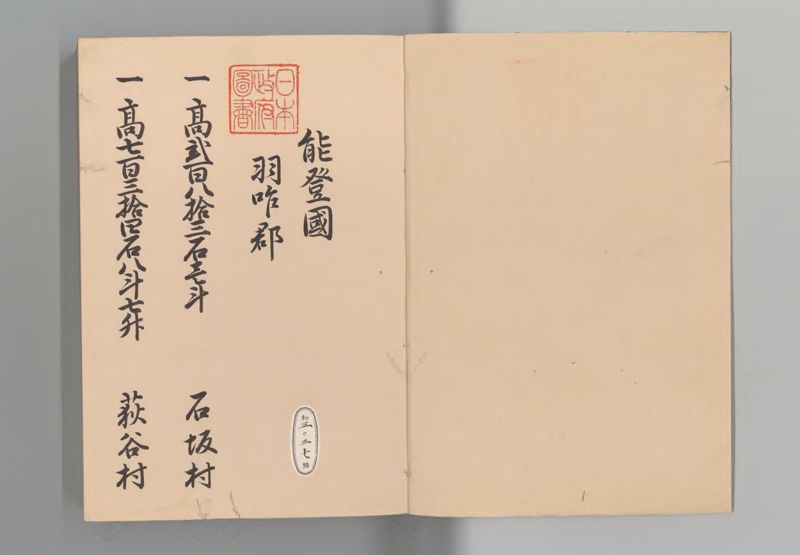 能登國
羽咋郡
一 高弐百八拾三石壱斗 石坂村
一 高七百三拾四石八斗七升 萩谷村
日本政府圖書